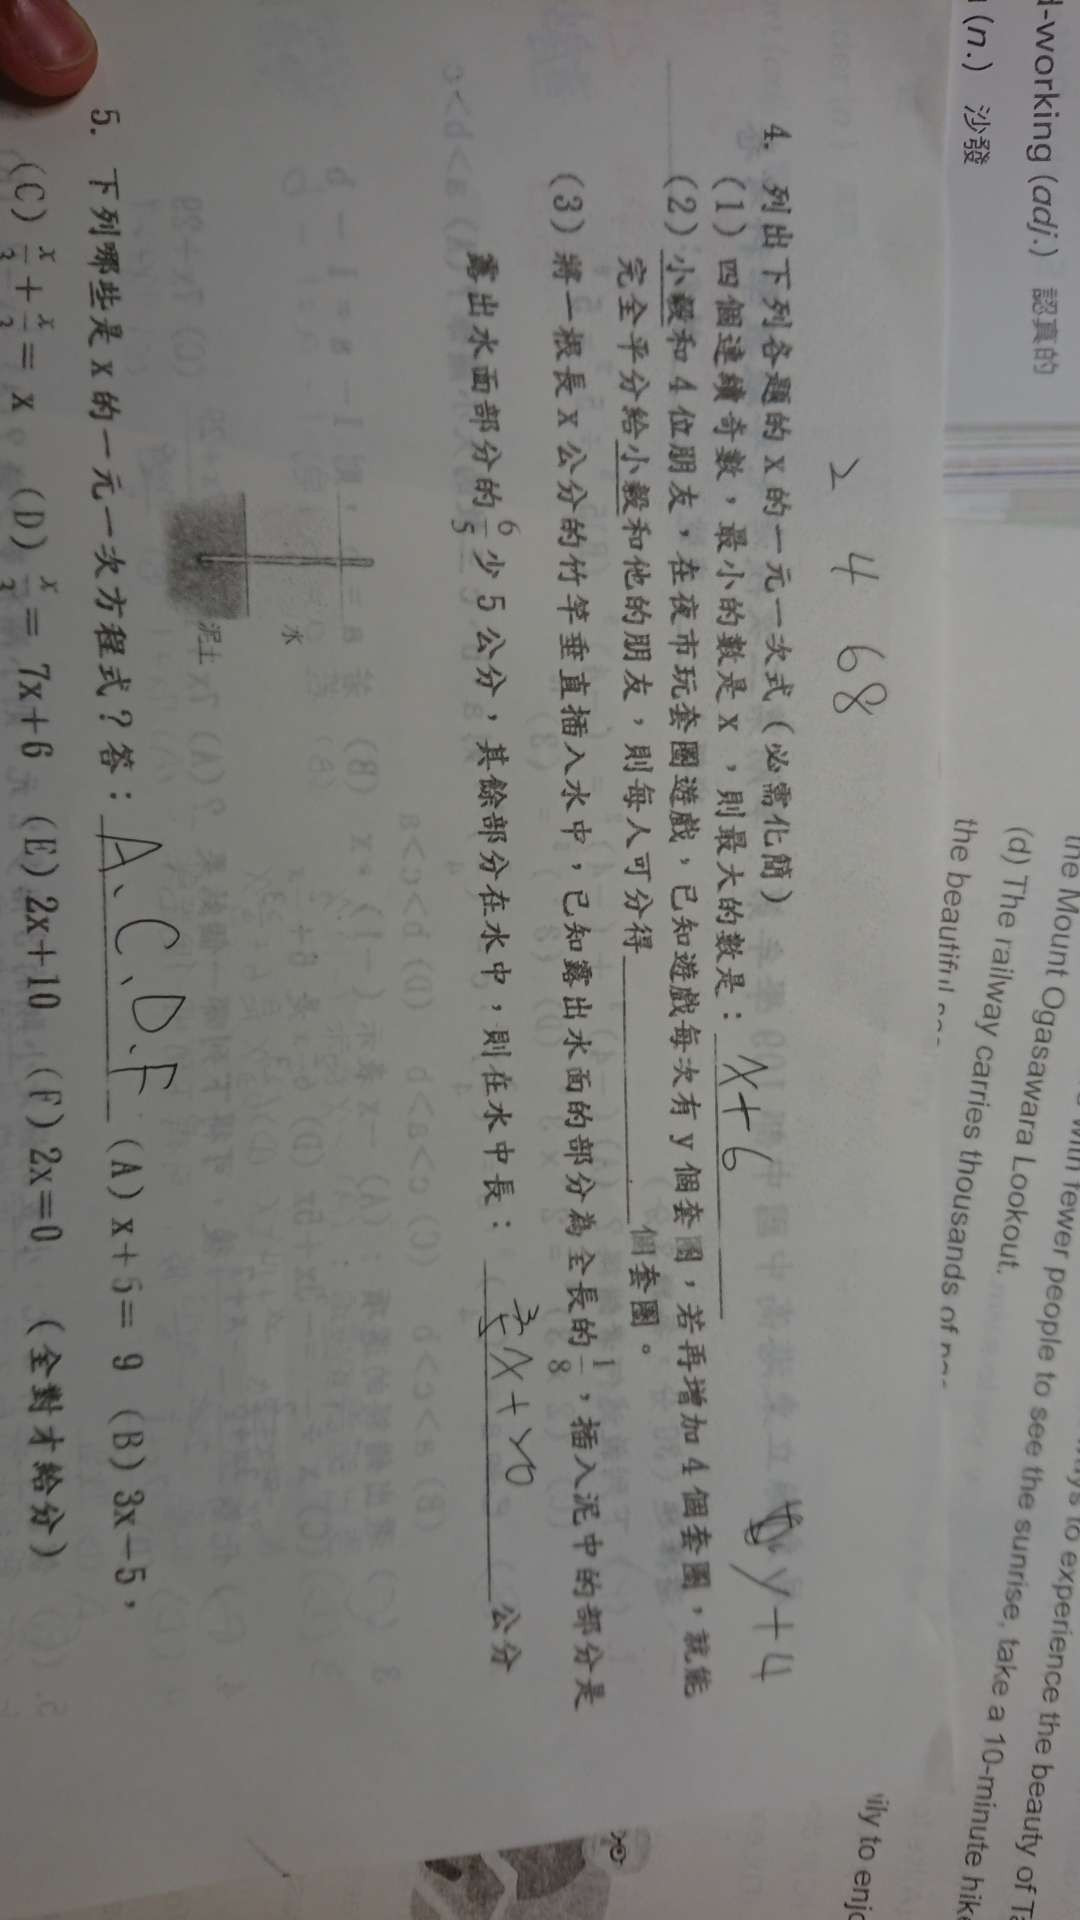 d-working (adj.) 認真的
(n.) 沙發
the Mount Ogasawara Lookout.
(d) The railway carries thousands of
the beautiful
with fewer people to see the sunrise, take a 10-minute hike
to experience the beauty of
ily to enjo
2 4 6 8
4. 列出下列各題的 X 的一元一次式(必需化簡)
(1) 四個連續奇數，最小的數是 X ，則最大的數是：X+6
y+4
(2) 小毅和 4 位朋友，在夜市玩套圈遊戲，已知遊戲每次有 y 個套圈，若再增加 4 個套圈，就能
完全平分給小毅和他的朋友，則每人可分得________個套圈。
(3) 將一根長 X 公分的竹竿垂直插入水中，已知露出水面的部分為全長的 1/8，插入泥中的部分是
露出水面部分的 6/5 少 5 公分，其餘部分在水中，則在水中長：公分
水
泥土
5. 下列哪些是 X 的一元一次方程式？答：A、C、D、F (A) x+5=9 (B) 3x-5，
(C) x/3+x/3=x (D) x/3=7x+6 (E) 2x+10 (F) 2x=0 (全對才給分)